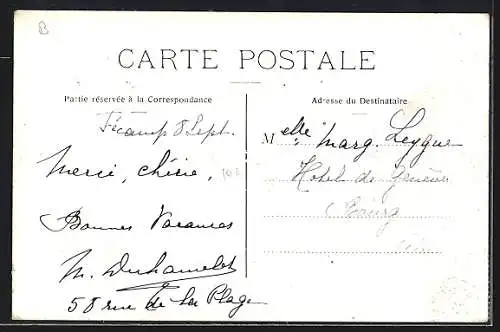 B
CARTE POSTALE
Partie réservée à la Correspondance
Fécamp 8 Sept.
Merci, chérie,
Bonnes Vacances
M. Duhamelet
58 rue de la Plage
Adresse du Destinataire
Melle Marg. Leygue
Hôtel de Genève
Bourg
Ain